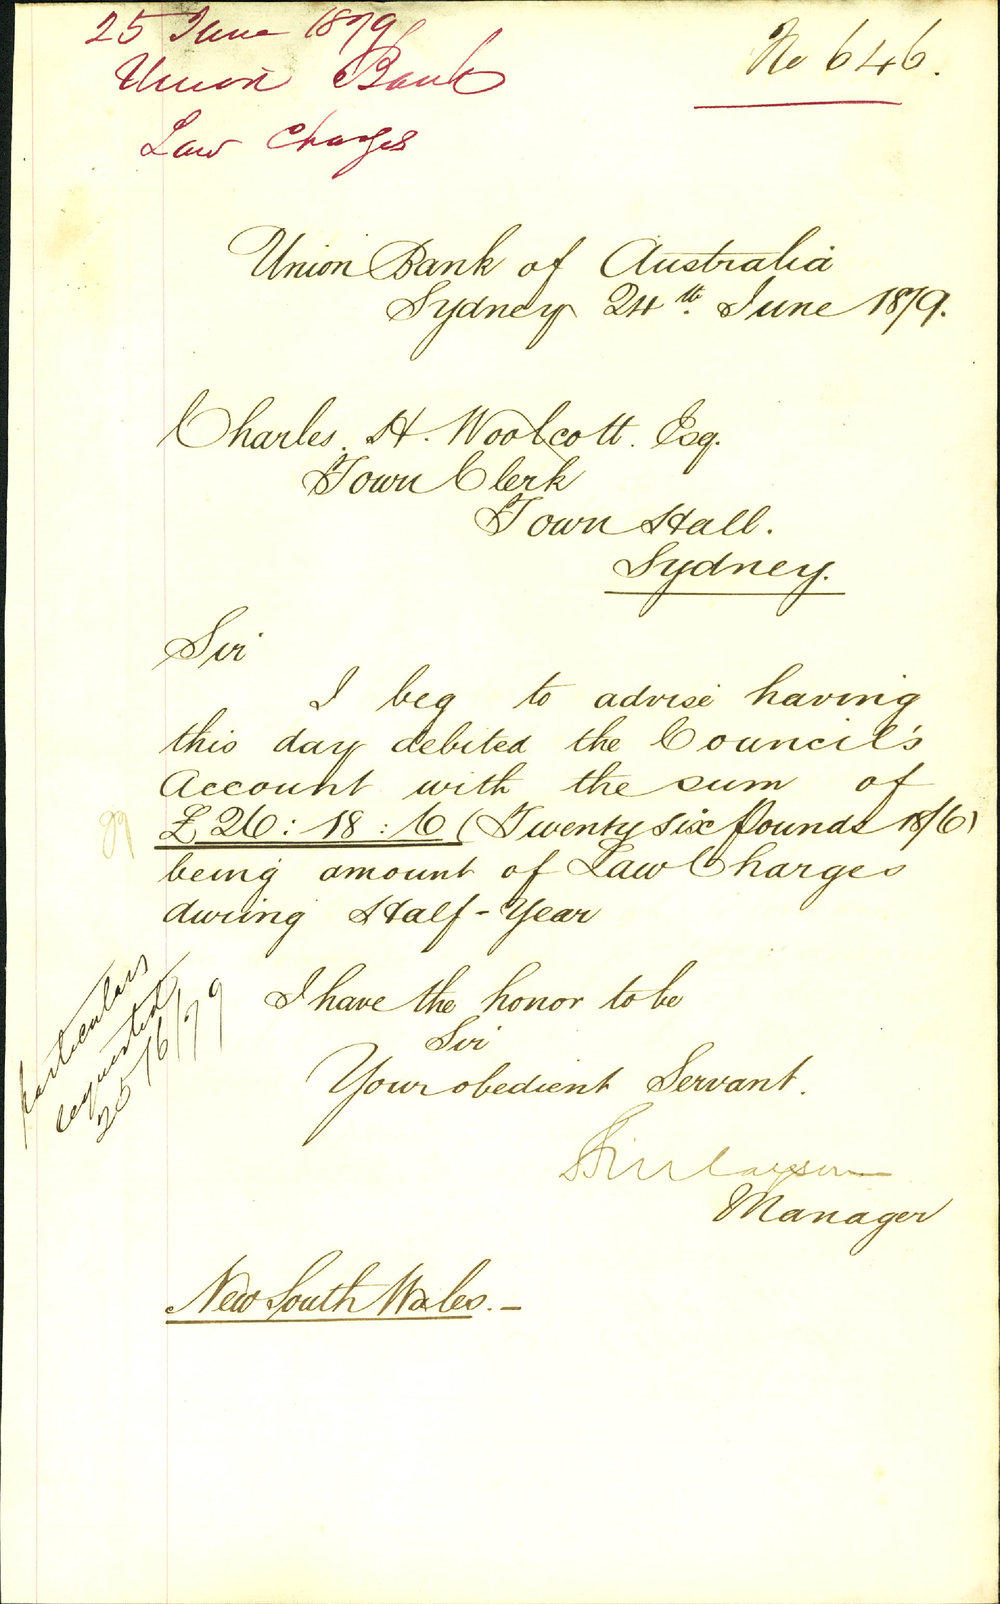 25 June 1879
Union Bank
Law Charges
No 646.
Union Bank of Australia
Sydney 24th. June 1879.
Charles. H. Woolcott. Esq.
Town Clerk
Town Hall.
Sydney.
Sir
I beg to advise having
this day debited the Council's
Account with the sum of
£26:18:6 (Twenty six pounds 18/6)
being amount of Law Charges
during Half-Year
particulars
requested
25/6/79
I have the honor to be
Sir
Your obedient Servant.
Manager
New South Wales.—